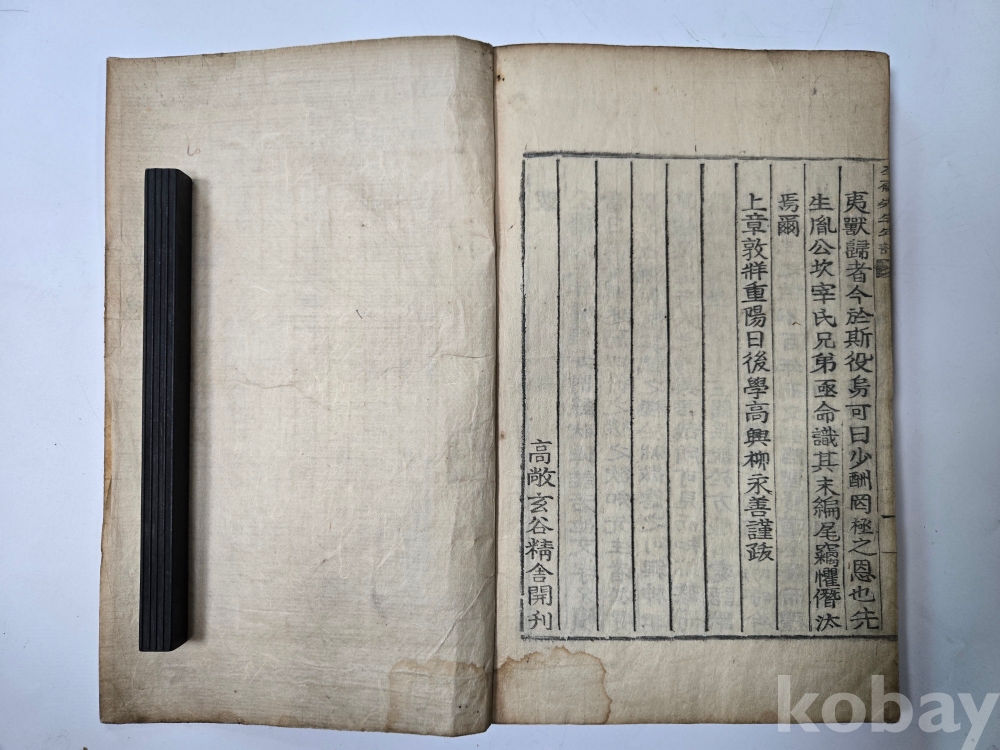 夷獸歸者今於斯役焉可曰少酬罔極之恩也先
生胤公坎宰氏兄弟亟命識其末編尾竊懼僭汰
焉爾
上章敦牂重陽日後學高興柳永善謹跋
高敞玄谷精舍開刊
kobay